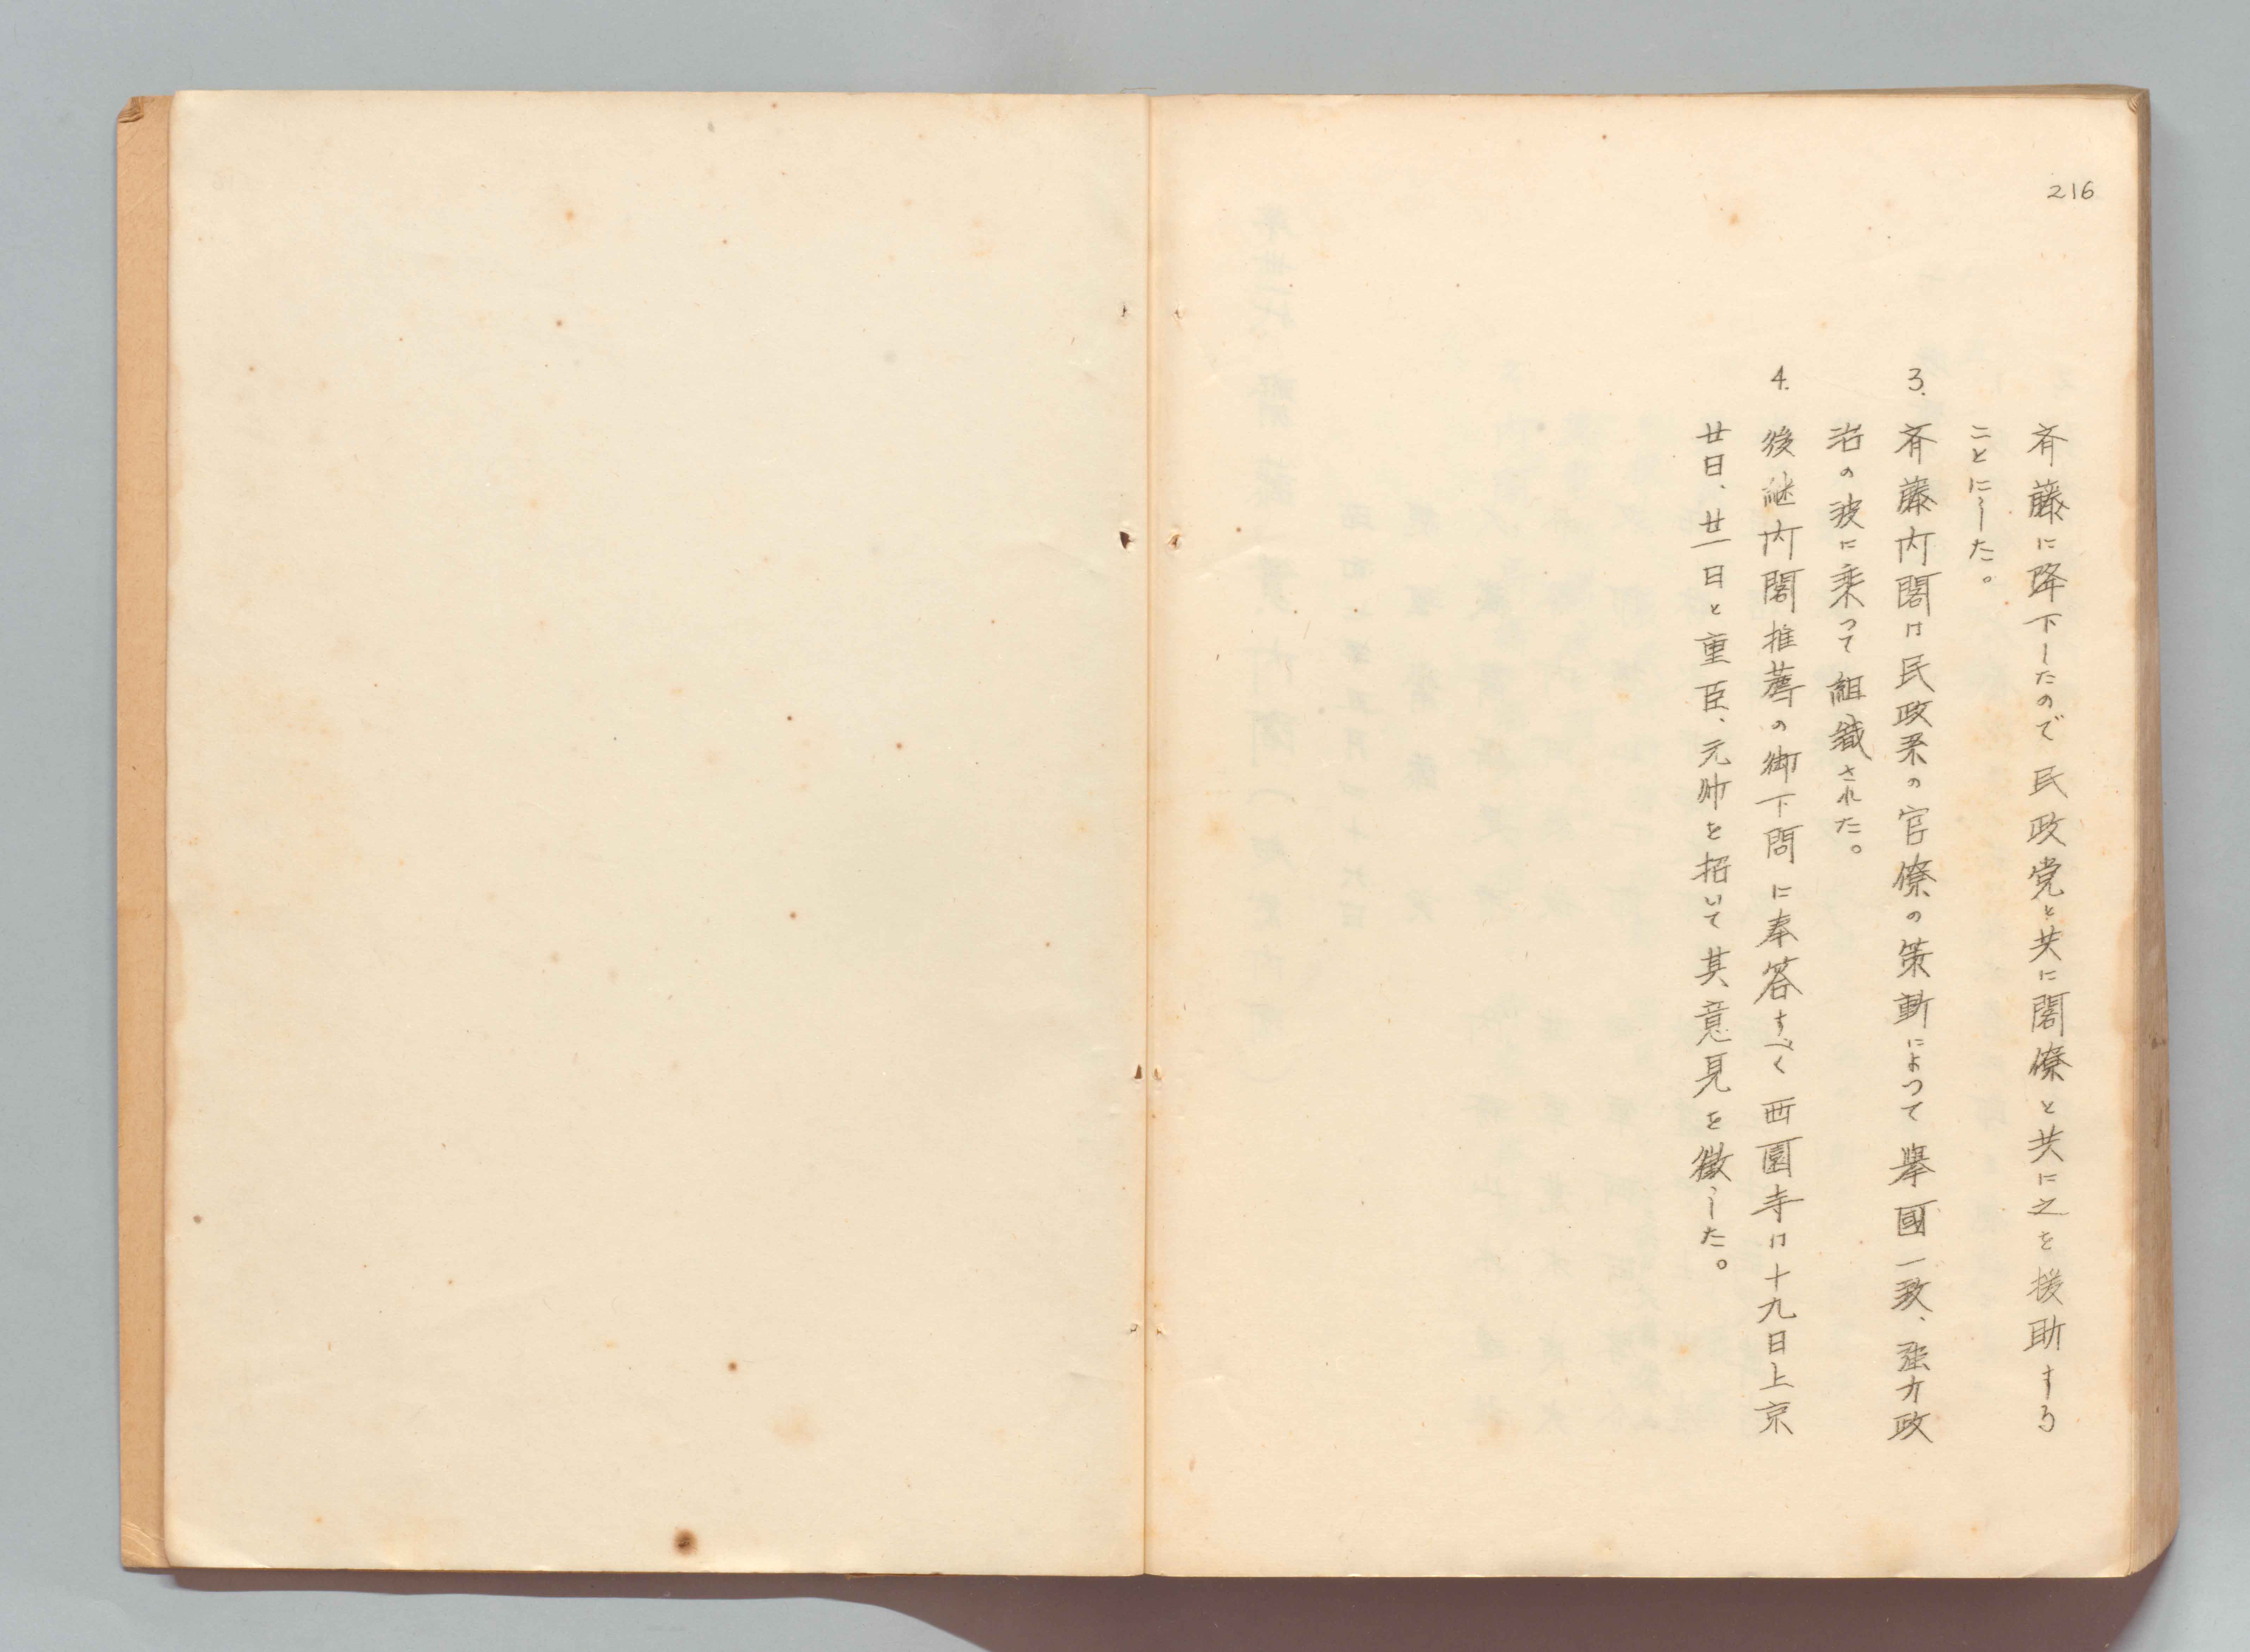 216
斉藤に降下したので民政党と共に閣僚と共に之を援助する
ことにした。
3. 斉藤内閣は民政系の官僚の策動によつて挙國一致、強力政
治の波に乗つて組織された。
4. 後継内閣推薦の御下問に奉答すべく西園寺は十九日上京
廿日、廿一日と重臣、元帥を招いて其意見を徴した。